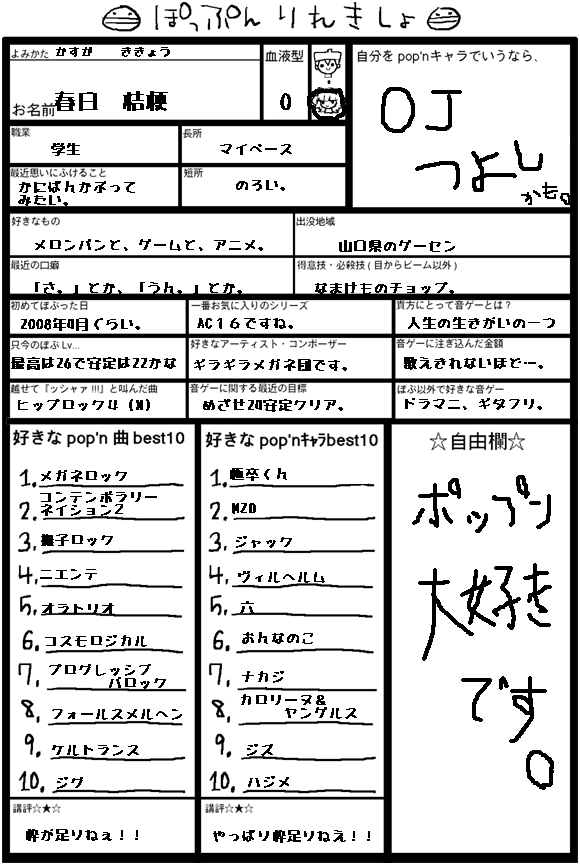 ぽっぷん りれきしょ
よみかた かすが ききょう
血液型
自分を pop'nキャラでいうなら、
お名前 春日 桔梗
O
OJ
つよし
かも。
職業
長所
学生
マイペース
最近思いにふけること
短所
かにぱんかぶって
みたい。
のろい。
好きなもの
出没地域
メロンパンと、ゲームと、アニメ。
山口県のゲーセン
最近の口癖
得意技・必殺技 ( 目からビーム以外 )
「さ。」とか、「うん。」とか。
なまけものチョップ。
初めてぽぷった日
一番お気に入りのシリーズ
貴方にとって音ゲーとは？
2008年4月ぐらい。
AC16ですね。
人生の生きがいの一つ
只今のぽぷ Lv...
好きなアーティスト・コンポーザー
音ゲーに注ぎ込んだ金額
最高は26で安定は22かな
ギラギラメガネ団です。
数えきれないほど…。
越せて『ッシャァ !!!』と叫んだ曲
音ゲーに関する最近の目標
ぽぷ以外で好きな音ゲー
ヒップロック4 (H)
めざせ24安定クリア。
ドラマニ、ギタフリ。
好きな pop'n 曲 best10
好きな pop'nｷｬﾗbest10
☆自由欄☆
1. メガネロック
2. コンテンポラリー
ネイション2
3. 撫子ロック
4. ニエンテ
5. オラトリオ
6. コスモロジカル
7. プログレッシブ
バロック
8. フォールスメルヘン
9. ケルトランス
10. ジグ
講評☆★☆
枠が足りねぇ！！
1. 極卒くん
2. MZD
3. ジャック
4. ヴィルヘルム
5. 六
6. おんなのこ
7. ナカジ
8. カロリーヌ&
ヤングルス
9. ジズ
10. ハジメ
講評☆★☆
やっぱり枠足りねえ！！
ポップン
大好き
です
。